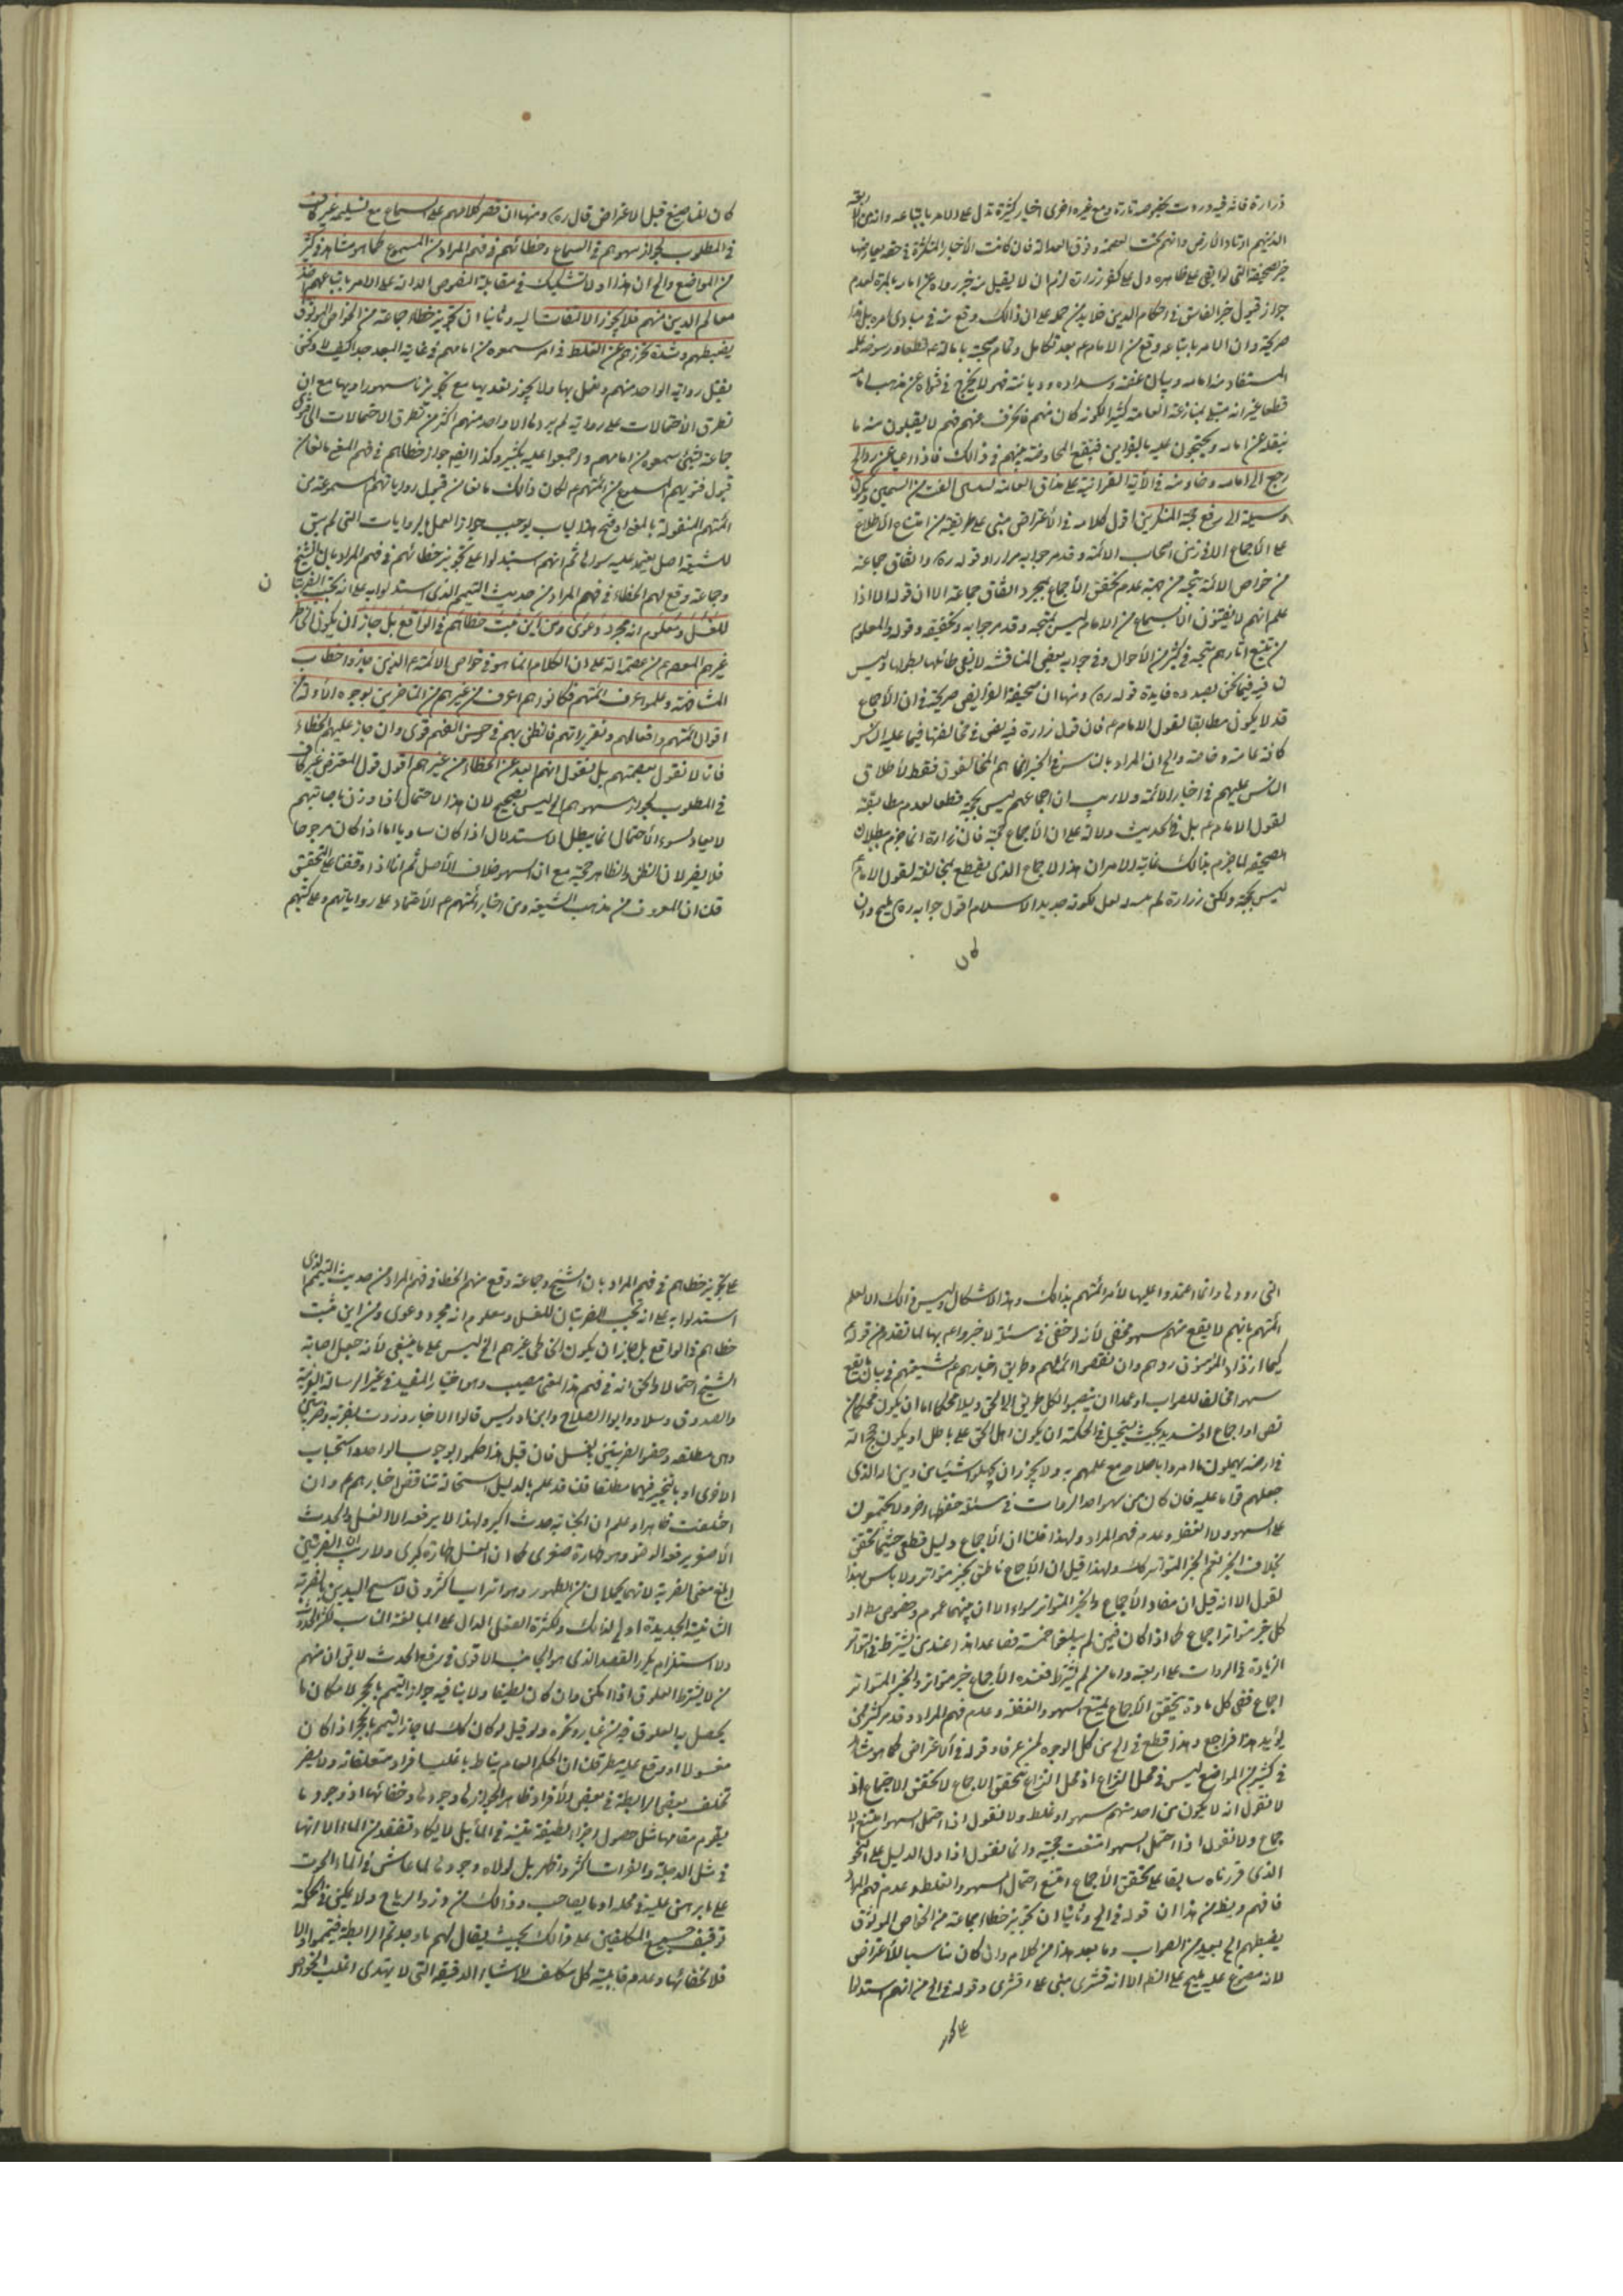 زرارة فانه فيه وردت بخصوصه تارة ومع غيره اخرى اخبار كثيرة تدل على الامر باتباعه وانه من الاربعة
الذينهم اوتاد الارض وانهم تحت العصمة وفوق العدالة فان كانت الأخبار المتكثرة في حقه يعارضها
خبر صحيفة التى لو ابقى على ظاهره دل على كفر زرارة لزم ان لا يقبل منه خبر رواه عن امامه بالمرة لعدم
جواز قبول خبر الفاسق في احكام الدين فلا بد من حمله على ان ذالك وقع منه في مبادى امره بل هذا
صريحة وان الامر باتباعه وقع من الامام ع بعد تكامل وتمام صحبته بامامه قطعا ورسوخ علمه
المستفاد من امامه وبيان عفته وسداده وديانته فهو لا يخرج في فتواه عن مذهب امامه
قطعا غير انه مبتلى بمنازعة العامة كثيرا لكونه كان منهم فانحرف عنهم فهم لا يقبلون منه ما
ينقله عن امامه ويحتجون عليه بالقوانين فتقع المحاوضة بينهم في ذالك فاذا اعيا عن رد الخ
رجع الى امامه وخاوضه في الآية القرانية على مذاق العامة
وسيلة الى رفع حجة المنكرين اقول كلامه في الاعتراض مبنى على طريقته من امتناع الاطلاع
على الأجماع الا في زمن اصحاب الائمة وقد مر جوابه مرارا وقوله ره واتفاق جماعة
من خواص الائمة يتجه من جهة عدم تحقق الأجماع بمجرد اتفاق جماعة الا ان قوله الا اذا
علم انهم لا يفتون الا بسماع من الامام ليس بمتجه وقد مر جوابه وتحقيقه وقوله والمعلوم
من تتبع اثارهم يتجه في كثير من الأحوال وفي جوابه بعض المناقشة لا يفى طائلها بطولها وليس
فيه فيما نحن بصدده فايدة قوله ره ومنها ان صحيفة الفرايض صريحة في ان الأجماع
قد لا يكون مطابقا لقول الامام ع فان قول زرارة فيه نص في مخالفتها فيما عليه الناس
كافة عامة وخاصة والجواب ان المراد بالناس في الخبر انما هم المخالفون فقط لأطلاق
الناس عليهم في اخبار الائمة ولا ريب ان اجماعهم ليس بحجة قطعا لعدم مطابقته
لقول الامام ع بل في الحديث دلالة على ان الأجماع حجة فان زرارة انما جزم ببطلان
الصحيفة لما جزم بذالك غاية الامر ان هذا الاجماع الذى يقطع بمخالفته لقول الامام
ليس بحجة ولكن زرارة لم لعل لكونه جديد الاسلام اقول جوابه ره مليح وان
كان
كان لنا صنيع قبل الاعتراض قال ره ومنها ان قصر كلامهم على السماع مع تسليمه غير كاف
في المطلوب لجواز سهوهم في السماع وخطائهم في فهم المراد من المسموع كما هو مشاهد في كثير
من المواضع والجواب ان هذا اولا تشكيك في مقابلة النصوص الدالة على الامر باتباعهم واخذ
معالم الدين منهم فلا يجوز الالتفات اليه وثانيا ان تجويز خطاء جماعة من الخواص الموثوق
بضبطهم وشدة تحرزهم عن الغلط في امر سمعوه من امامهم في غاية البعد جدا كيف لا ونحن
نقبل رواية الواحد منهم ونعمل بها ولا يجوز تقديها مع تجويز نا سهو راويها مع ان
تطرق الاحتمالات على رواية لم يروها الا واحد منهم اكثر من تطرق الاحتمالات الى فتوى
جماعة بشئ سمعوه من امامهم واجمعوا عليه بكثير وكذا ايضا جواز خطائهم في فهم المعنى مانعا من
قبول فتويهم المسموع من ائمتهم لكان ذالك مانعا من قبول رواياتهم المسموعة من
ائمتهم المنقولة بالمعنى وفتح هذا الباب يوجب جواز العمل بروايات التى لم يبق
للشيعة اصل يعتمد عليه سواها ثم انهم استدلوا على تجويز خطائهم في فهم المراد بان الشيخ
وجماعة وقع لهم الخطاء في فهم المراد من حديث التيمم الذى استدلوا به على انه تجب الضربتان
للغسل ومعلوم انه مجرد دعوى ومن اين ثبت خطاهم في الواقع بل جاز ان يكون الخاطى
غيرهم المعصوم من عصمه الله على ان الكلام انما هو في خواص الائمة ع الذين حازوا خطاب
المشافهة وعلموا عرف ائمتهم فكانوا هم اعرف من غيرهم من المتاخرين بوجوه الأدلة من
اقوال ائمتهم وافعالهم وتقريراتهم فالظن بهم في حسن الفهم قوى وان جاز عليهم الخطاء
فانا لا نقول بعصمتهم بل نقول انهم ابعد عن الخطاء من غيرهم اقول قول المعترض غير كاف
في المطلوب لجواز سهوهم الخ ليس بصحيح لان هذا الاحتمال
لا يعاد لسوء الأحتمال انما يبطل الاستدلال اذا كان مساويا اما اذا كان مرجوحا
فلا يضر لان الظن والظاهر حجة مع ان السهو خلاف الأصل ثم انا اذا وقفنا على التحقيق
قلنا ان المعروف من مذهب الشيعة ومن اخبار ائمتهم ع الأعتماد على رواياتهم وعلى كتبهم
التى رووها وانما اعتمدوا عليها لأمر ائمتهم بذالك وهذا لا اشكال وليس ذالك الا لعلم
ائمتهم بانهم لا يقع منهم سهو مخفى لأنه لو خفى في مسئلة لاخبروهم بها لما تقدم من قوله ع
كيما ان زاد المؤمنون ردهم وان نقصوا اتمه لهم وطريق اخبارهم ع شيعتهم في بيان ما يقع
سهوا مخالفا للصواب او عمدا ان ينصبوا لكل طريق الى الحق دليلا محكما اما ان يكون محكما من
نص او اجماع او تسديد بحيث يستحيل في الحكمة ان يكون اهل الحق على باطل او يكون حجج الله
في ارضه يهملون ما امروا باصلاحه مع علمهم به ولا يجوز ان يجهلوا شيئا من دين الله الذى
جعلهم قواما عليه فان كان من سهو احد الرواة في مسئلة حفظها اخر ولا يجتمعون
على السهو ولا الغفلة وعدم فهم المراد ولهذا قلنا ان الأجماع دليل قطعى حيثما تحقق
بخلاف الخبر نعم الخبر المتواتر كذلك ولهذا قيل ان الأجماع ناطق بخبر متواتر ولا باس بهذا
لقول الا انه قيل ان مفاد الأجماع والخبر المتواتر سواء الا ان بينهما عموم وخصوص مطلق اذ
كل خبر متواتر اجماع كما اذا كان فيمن لم يبلغوا خمسة فصاعدا هذا عند من يشترط في التواتر
الزيادة في الرواة على اربعة واما من لم يشترط فعنده الأجماع خبر متواتر والخبر المتواتر
اجماع ففى كل مادة يتحقق الأجماع يمتنع السهو والغفلة وعدم فهم المراد وقد مر كثير مما
يؤيد هذا فراجع وهذا قطع في الحق من كل الوجوه لمن عرف وقوله في الأعتراض كما هو مشاهد
في كثير من المواضع ليس في محل النزاع اذ محل النزاع تتحقق الأجماع لا تحقق الاجتماع اذ
لا نقول انه لا يكون من احد منهم سهو او غلط ولا نقول اذا احتمل السهو امتنع الا
جماع ولا نقول اذا احتمل السهو انتفت حجية وانما نقول اذا دل الدليل على النحو
الذى قررناه سابقا على تحقق الأجماع امتنع احتمال السهو والغلط وعدم فهم المراد
فافهم ويظهر من هذا ان قوله في الجواب وثانيا ان تجويز خطاء جماعة من الخواص الموثوق
بضبطهم الخ بعيد من الصواب وما بعد هذا من كلامه وان كان مناسبا للأعتراض
لانه مصرح عليه مليح على النظر الا انه قشرى مبنى على قشرى وقوله في الجواب ثم انهم استدلوا
على تجويز
على تجويز خطاهم في فهم المراد بان الشيخ وجماعة وقع منهم الخطاء في فهم المراد من حديث التيمم الذى
استدلوا به على انه تجب الضربتان للغسل ومعلوم انه مجرد دعوى ومن اين ثبت
خطاهم في الواقع بل جاز ان يكون الخاطى غيرهم الخ ليس على ما ينبغى لأنه جعل اصابة
الشيخ احتمالا والحق انه في فهم هذا المعنى مصيب وهو اختيار المفيد في غير الرسالة الغرية
والصدوق وسلار وابوا الصلاح وابن ادريس قالوا الاخبار وردت بضربة وضربتين
وهى مطلقة وخصوا الضربتين بالغسل فان قيل هذا حكموا بوجوب الواحدة واستحباب
الاخرى او بالتخيير فيهما مطلقا قلنا قد علم بالدليل استحالة تناقض اخبارهم ع وان
اختلفت ظاهرا وعلم ان الجنابة حدث اكبر ولهذا لا يرفعه الا الغسل والحدث
الأصغر يرفعه الوضوء وهو طهارة صغرى كما ان الغسل طهارة كبرى ولا ريب ان الضربتين
ابلغ من الضربة لانهما يحملان من الطهور وهو التراب اكثر ولان مسح اليدين بالضربة
الثانية الجديدة اولى لذالك ولكثرة الفعل الدال على المبالغة المناسب لأكثر الحدث
ولاستلزام تكرر القصد الذى هو الجانب الاقوى في رفع الحدث لا يقال ان منهم
من لا يشترط العلوق اذا امكن وان كان لطيفا ولا ينافيه جواز التيمم بالحجر لامكان ما
يحصل به العلوق فيه من غبار ونحوه ولو قيل لو كان كذلك لما جاز التيمم بالحجر اذا كان
مغسولا او وقع عليه مطر قلنا ان الحكم العام يناط باغلب افراد متعلقاته ولا يضر
تخلف بعض الرابطة في بعض الأفراد ظاهرا لجواز وجودها وخفائها او وجود ما
يقوم مقامها مثل حصول اجزاء لطيفة
في مثل الدجلة والفرات اكثر واظهر بل لولاه وجودها لما عاش في الماء الحوت
على ما برهن عليه في محله او ما يصاحب وذالك من ذرو الرياح ولا يمكن في الحكمة
توقيف جميع المكلفين على ذالك بحيث يقال لهم ما وجدتم الرابطة فتيمموا والا
فلا لخفائها وعدم قابلية كل مكلف للاشياء الدقيقة التى لا يهتدى اغلب الخواص